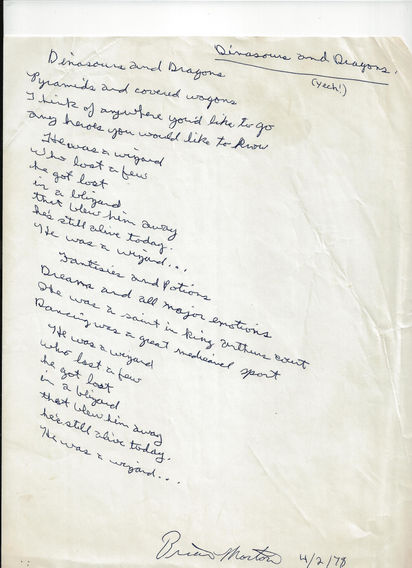 Dinasours and Dragons.
(Yech!)
Dinasours and Dragons
Pyramids and covered wagons
Think of anywhere you'd like to go
any heroes you would like to know
He was a wizard
Who lost a few
he got lost
in a blizard
that blew him away
he's still alive today.
He was a wizard...
Fantisies and Potions
Dreams and all major emotions
She was a saint in king arthurs court
Dancing was a great medieval sport
He was a wizard
who lost a few
he got lost
in a blizard
that blew him away
he's still alive today.
He was a wizard...
Brian Morton 4/2/78